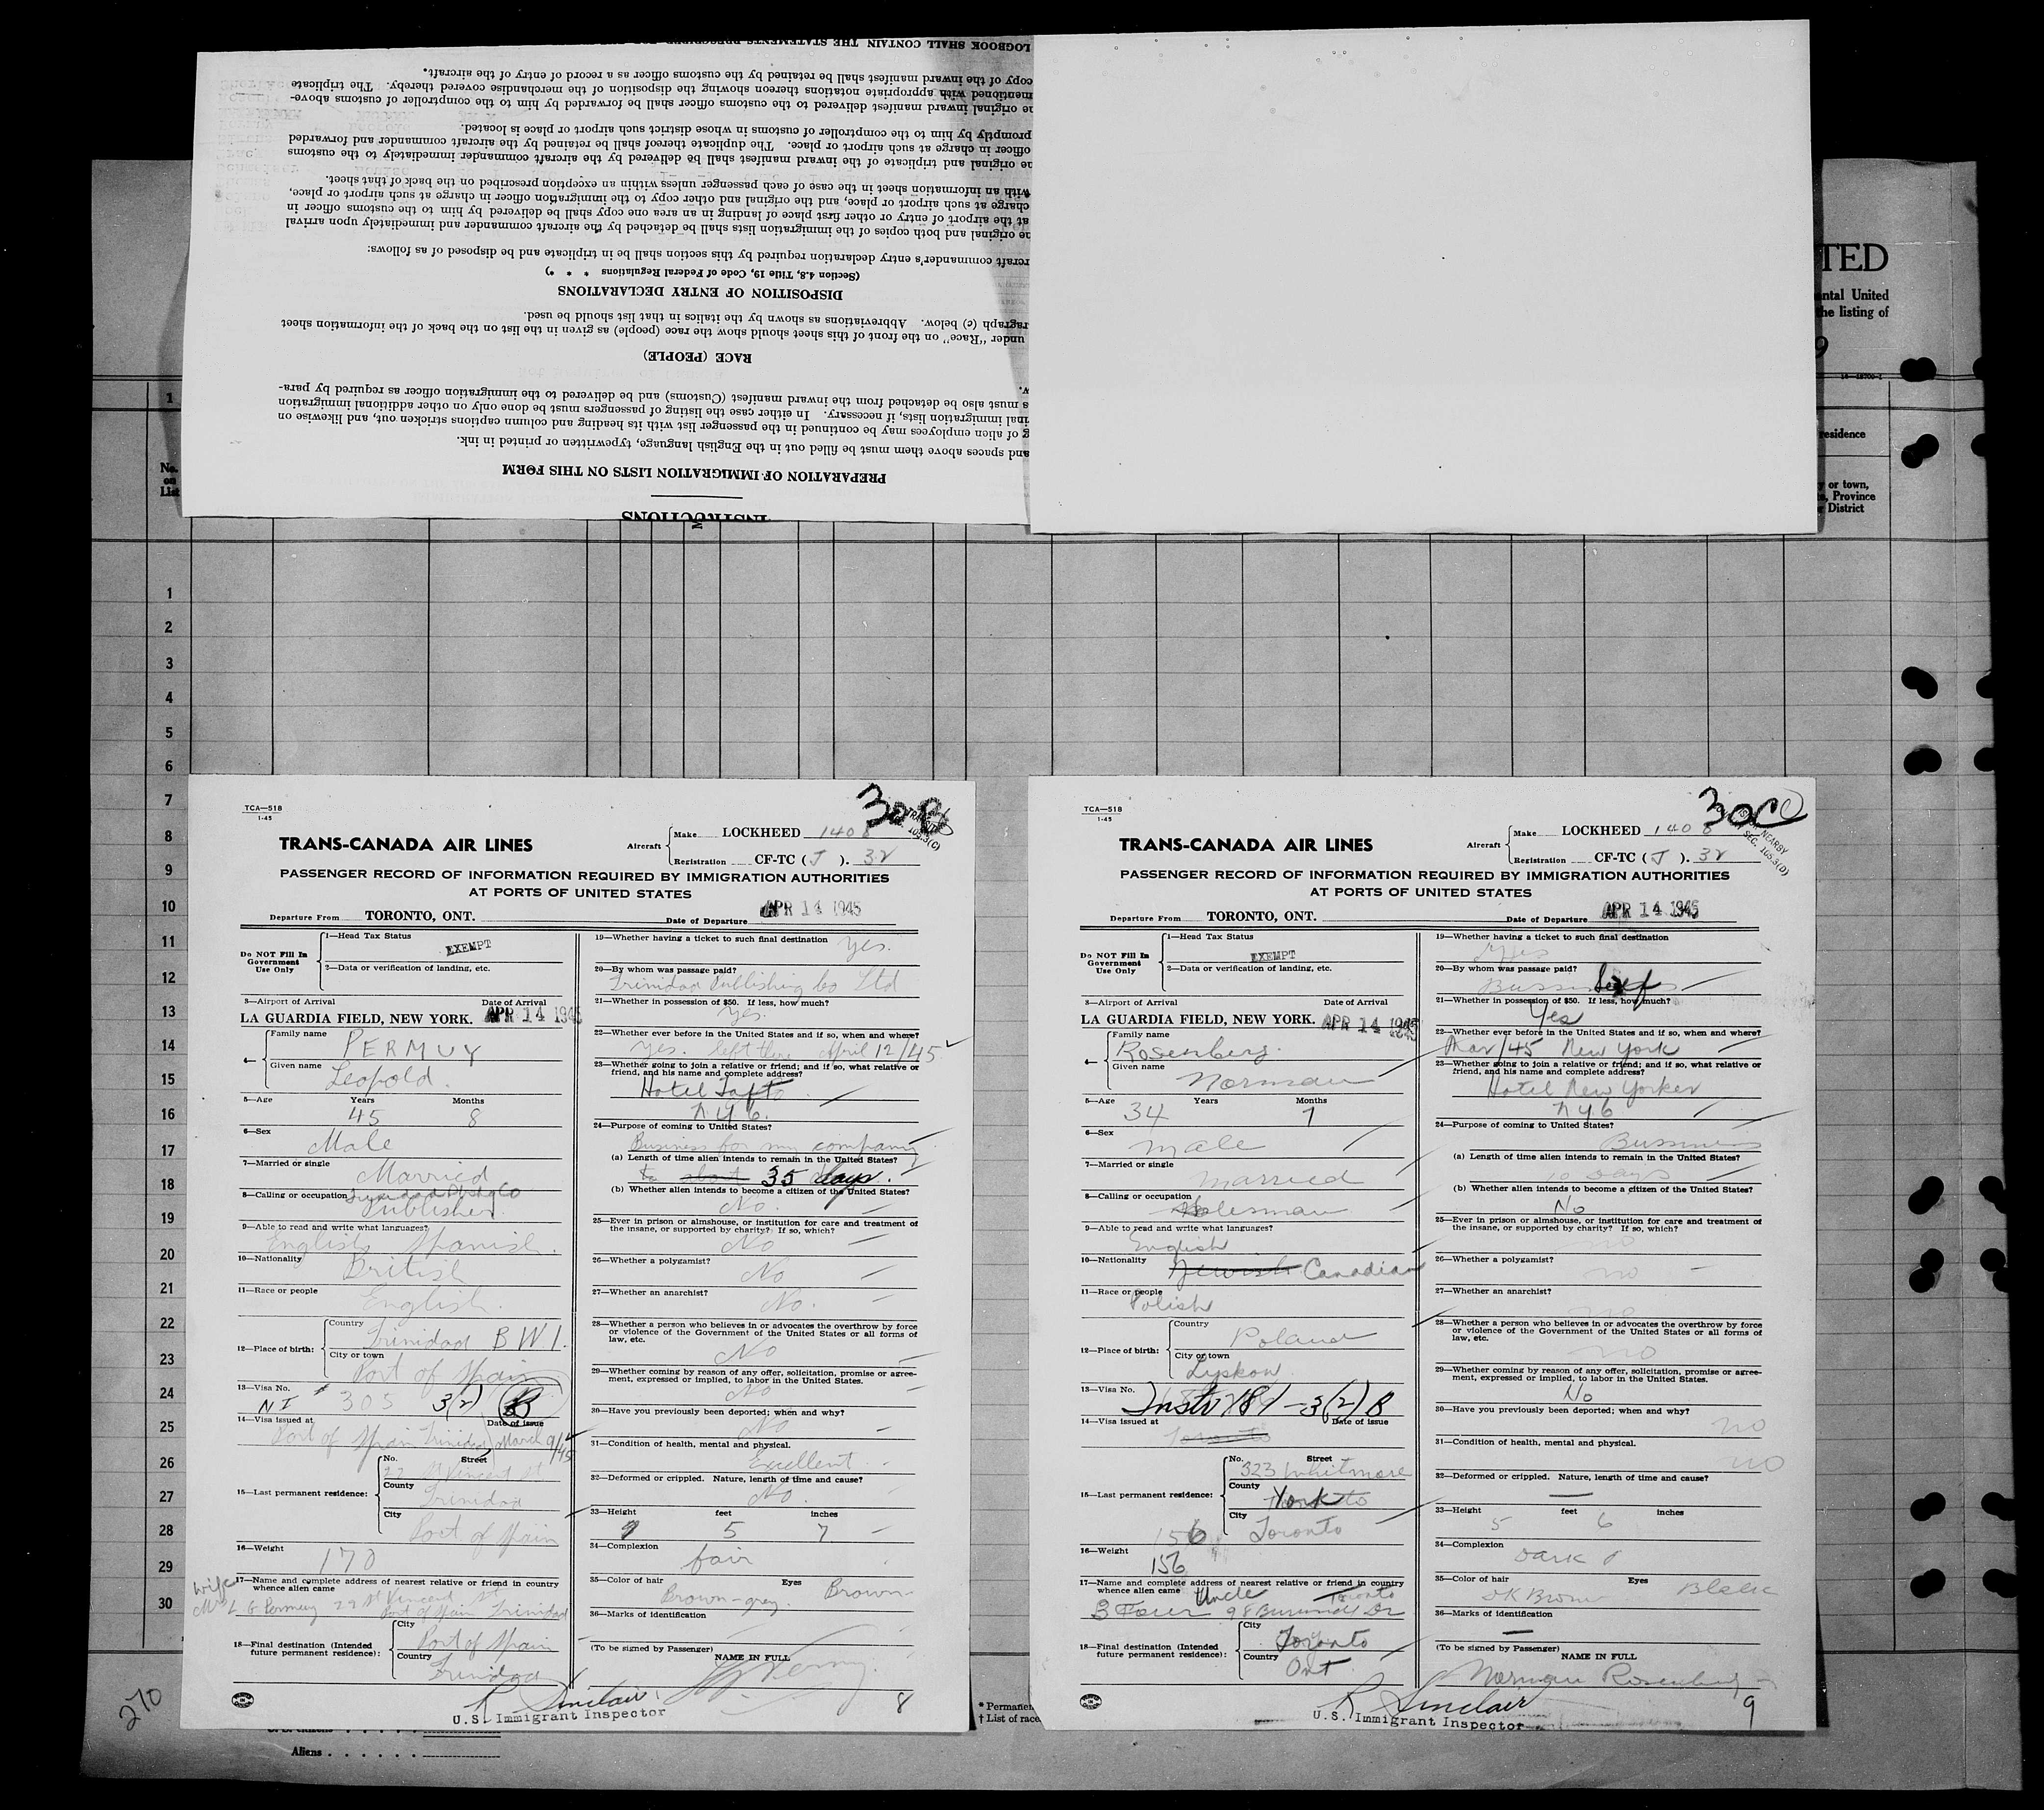 LOGBOOK SHALL CONTAIN THE STATEMENTS
copy of the inward manifest shall be retained by the customs officer as a record of entry of the aircraft.
mentioned with appropriate notations thereon showing the disposition of the merchandise covered thereby. The triplicate
e original inward manifest delivered to the customs officer shall be forwarded by him to the comptroller of customs above-
promptly by him to the comptroller of customs in whose district such airport or place is located.
officer in charge at such airport or place. The duplicate thereof shall be retained by the aircraft commander and forwarded
e original and triplicate of the inward manifest shall be delivered by the aircraft commander immediately to the customs
with an information sheet in the case of each passenger unless within an exception prescribed on the back of that sheet.
charge at such airport or place, and the original and other copy to the immigration officer in charge at such airport or place,
at the airport of entry or other first place of landing in an area one copy shall be delivered by him to the customs officer in
e original and both copies of the immigration lists shall be detached by the aircraft commander and immediately upon arrival
rcraft commander's entry declaration required by this section shall be in triplicate and be disposed of as follows:
(Section 4.8, Title 19, Code of Federal Regulations * * *)
DISPOSITION OF ENTRY DECLARATIONS
ragraph (c) below. Abbreviations as shown by the italics in that list should be used.
under "Race" on the front of this sheet should show the race (people) as given in the list on the back of the information sheet
RACE (PEOPLE)
w.
s must also be detached from the inward manifest (Customs) and be delivered to the immigration officer as required by para-
inal immigration lists, if necessary. In either case the listing of passengers must be done only on other additional immigration
g of alien employees may be continued in the passenger list with its heading and column captions stricken out, and likewise on
and spaces above them must be filled out in the English language, typewritten or printed in ink.
PREPARATION OF IMMIGRATION LISTS ON THIS FORM
INSTRUCTIONS
TED
ntal United
the listing of
9
residence
y or town,
, Province
r District
1
No.
on
List
M
1
2
3
4
5
6
7
8
9
10
11
12
13
14
15
16
17
18
19
20
21
22
23
24
25
26
27
28
29
30
270
TCA—518
1-45
TRANS-CANADA AIR LINES
Aircraft
Make LOCKHEED 1408
Registration CF-TC ( J ). 32
PASSENGER RECORD OF INFORMATION REQUIRED BY IMMIGRATION AUTHORITIES
AT PORTS OF UNITED STATES
Departure From TORONTO, ONT. Date of Departure APR 14 1945
Do NOT Fill In
Government
Use Only
1—Head Tax Status
EXEMPT
2—Data or verification of landing, etc.
3—Airport of Arrival Date of Arrival
LA GUARDIA FIELD, NEW YORK. APR 14 1945
4— Family name
PERMUY
Given name
Leopold
5—Age Years Months
45 8
6—Sex
Male
7—Married or single
Married
8—Calling or occupation
Publisher
9—Able to read and write what languages?
English Spanish
10—Nationality
British
11—Race or people
English
12—Place of birth:
Country
Trinidad B W I.
City or town
Port of Spain
13—Visa No.
NI # 305 3(2) B
14—Visa issued at Date of issue
Port of Spain Trinidad March 9/45
15—Last permanent residence:
No. Street
22 St Vincent St
County
Trinidad
City
Port of Spain
16—Weight
170
17—Name and complete address of nearest relative or friend in country
whence alien came
Wife
Mrs L G Permuy 22 St Vincent St
Port of Spain Trinidad
18—Final destination (Intended
future permanent residence):
City
Port of Spain
Country
Trinidad
19—Whether having a ticket to such final destination
yes.
20—By whom was passage paid?
Trinidad Publishing Co Ltd
21—Whether in possession of $50. If less, how much?
Yes.
22—Whether ever before in the United States and if so, when and where?
Yes. left there April 12/45
23—Whether going to join a relative or friend; and if so, what relative or
friend, and his name and complete address?
Hotel Taft
N.Y.C.
24—Purpose of coming to United States?
Business for my company
(a) Length of time alien intends to remain in the United States?
35 days.
(b) Whether alien intends to become a citizen of the United States?
No.
25—Ever in prison or almshouse, or institution for care and treatment of
the insane, or supported by charity? If so, which?
No
26—Whether a polygamist?
No
27—Whether an anarchist?
No.
28—Whether a person who believes in or advocates the overthrow by force
or violence of the Government of the United States or all forms of
law, etc.
No
29—Whether coming by reason of any offer, solicitation, promise or agree-
ment, expressed or implied, to labor in the United States.
No
30—Have you previously been deported; when and why?
No
31—Condition of health, mental and physical.
Excellent
32—Deformed or crippled. Nature, length of time and cause?
No.
33—Height feet inches
5 7
34—Complexion
fair
35—Color of hair Eyes
Brown-grey. Brown
36—Marks of identification
(To be signed by Passenger)
NAME IN FULL
R Sinclair
U.S. Immigrant Inspector
8
TCA—518
1-45
TRANS-CANADA AIR LINES
Aircraft
Make LOCKHEED 1408
Registration CF-TC ( J ). 32
NEARBY
SEC. 165.3(D)
PASSENGER RECORD OF INFORMATION REQUIRED BY IMMIGRATION AUTHORITIES
AT PORTS OF UNITED STATES
Departure From TORONTO, ONT. Date of Departure APR 14 1945
Do NOT Fill In
Government
Use Only
1—Head Tax Status
EXEMPT
2—Data or verification of landing, etc.
3—Airport of Arrival Date of Arrival
LA GUARDIA FIELD, NEW YORK. APR 14 1945
4— Family name
Rosenberg.
Given name
Norman
5—Age Years Months
34 7
6—Sex
Male
7—Married or single
Married
8—Calling or occupation
Salesman
9—Able to read and write what languages?
English
10—Nationality
Jewish Canadian
11—Race or people
Polish
12—Place of birth:
Country
Poland
City or town
13—Visa No.
3(2) B
14—Visa issued at Date of issue
Toronto
15—Last permanent residence:
No. Street
323 Whitmore
County
York
City
Toronto
156
16—Weight
156
17—Name and complete address of nearest relative or friend in country
whence alien came
Uncle Toronto
18—Final destination (Intended
future permanent residence):
City
Toronto
Country
Ont
19—Whether having a ticket to such final destination
Yes
20—By whom was passage paid?
Self
21—Whether in possession of $50. If less, how much?
Yes
22—Whether ever before in the United States and if so, when and where?
Mar/45 New York
23—Whether going to join a relative or friend; and if so, what relative or
friend, and his name and complete address?
Hotel New Yorker
NYC
24—Purpose of coming to United States?
Bussiness
(a) Length of time alien intends to remain in the United States?
10 Days
(b) Whether alien intends to become a citizen of the United States?
No
25—Ever in prison or almshouse, or institution for care and treatment of
the insane, or supported by charity? If so, which?
no
26—Whether a polygamist?
no
27—Whether an anarchist?
no
28—Whether a person who believes in or advocates the overthrow by force
or violence of the Government of the United States or all forms of
law, etc.
no
29—Whether coming by reason of any offer, solicitation, promise or agree-
ment, expressed or implied, to labor in the United States.
No
30—Have you previously been deported; when and why?
no
31—Condition of health, mental and physical.
no
32—Deformed or crippled. Nature, length of time and cause?
33—Height feet inches
5 6
34—Complexion
Dark
35—Color of hair Eyes
DK Brown Black
36—Marks of identification
(To be signed by Passenger)
NAME IN FULL
Norman Rosenberg
R Sinclair
U.S. Immigrant Inspector
9
* Permanen
† List of race
Aliens . . . . . .